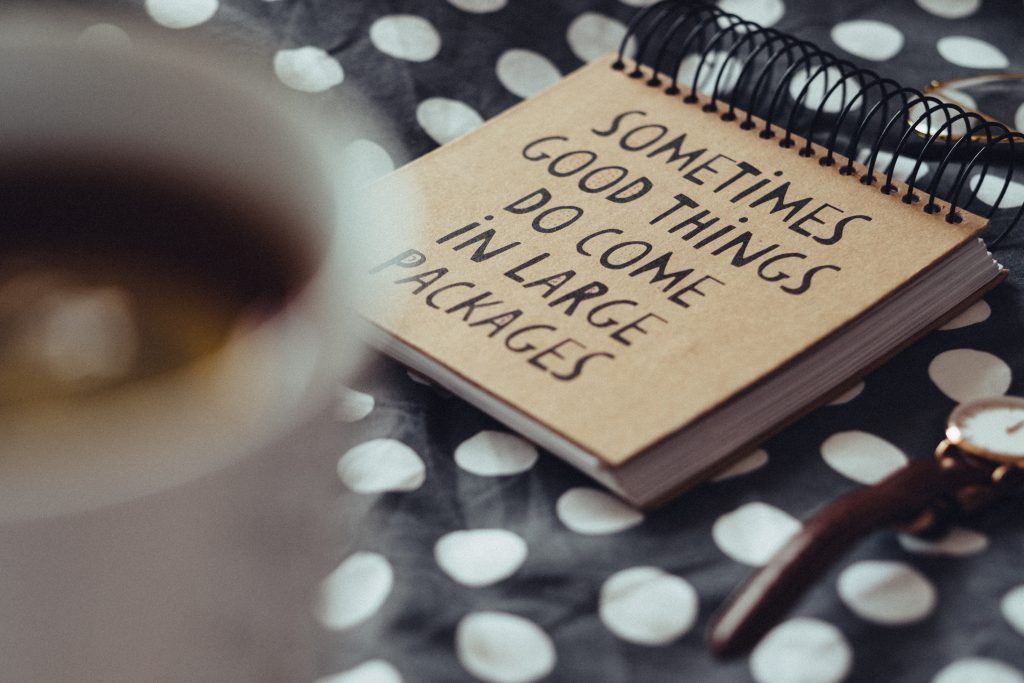 SOMETiMES
GOOD THiNGS
DO COME
iN LARGE
PACKAGES